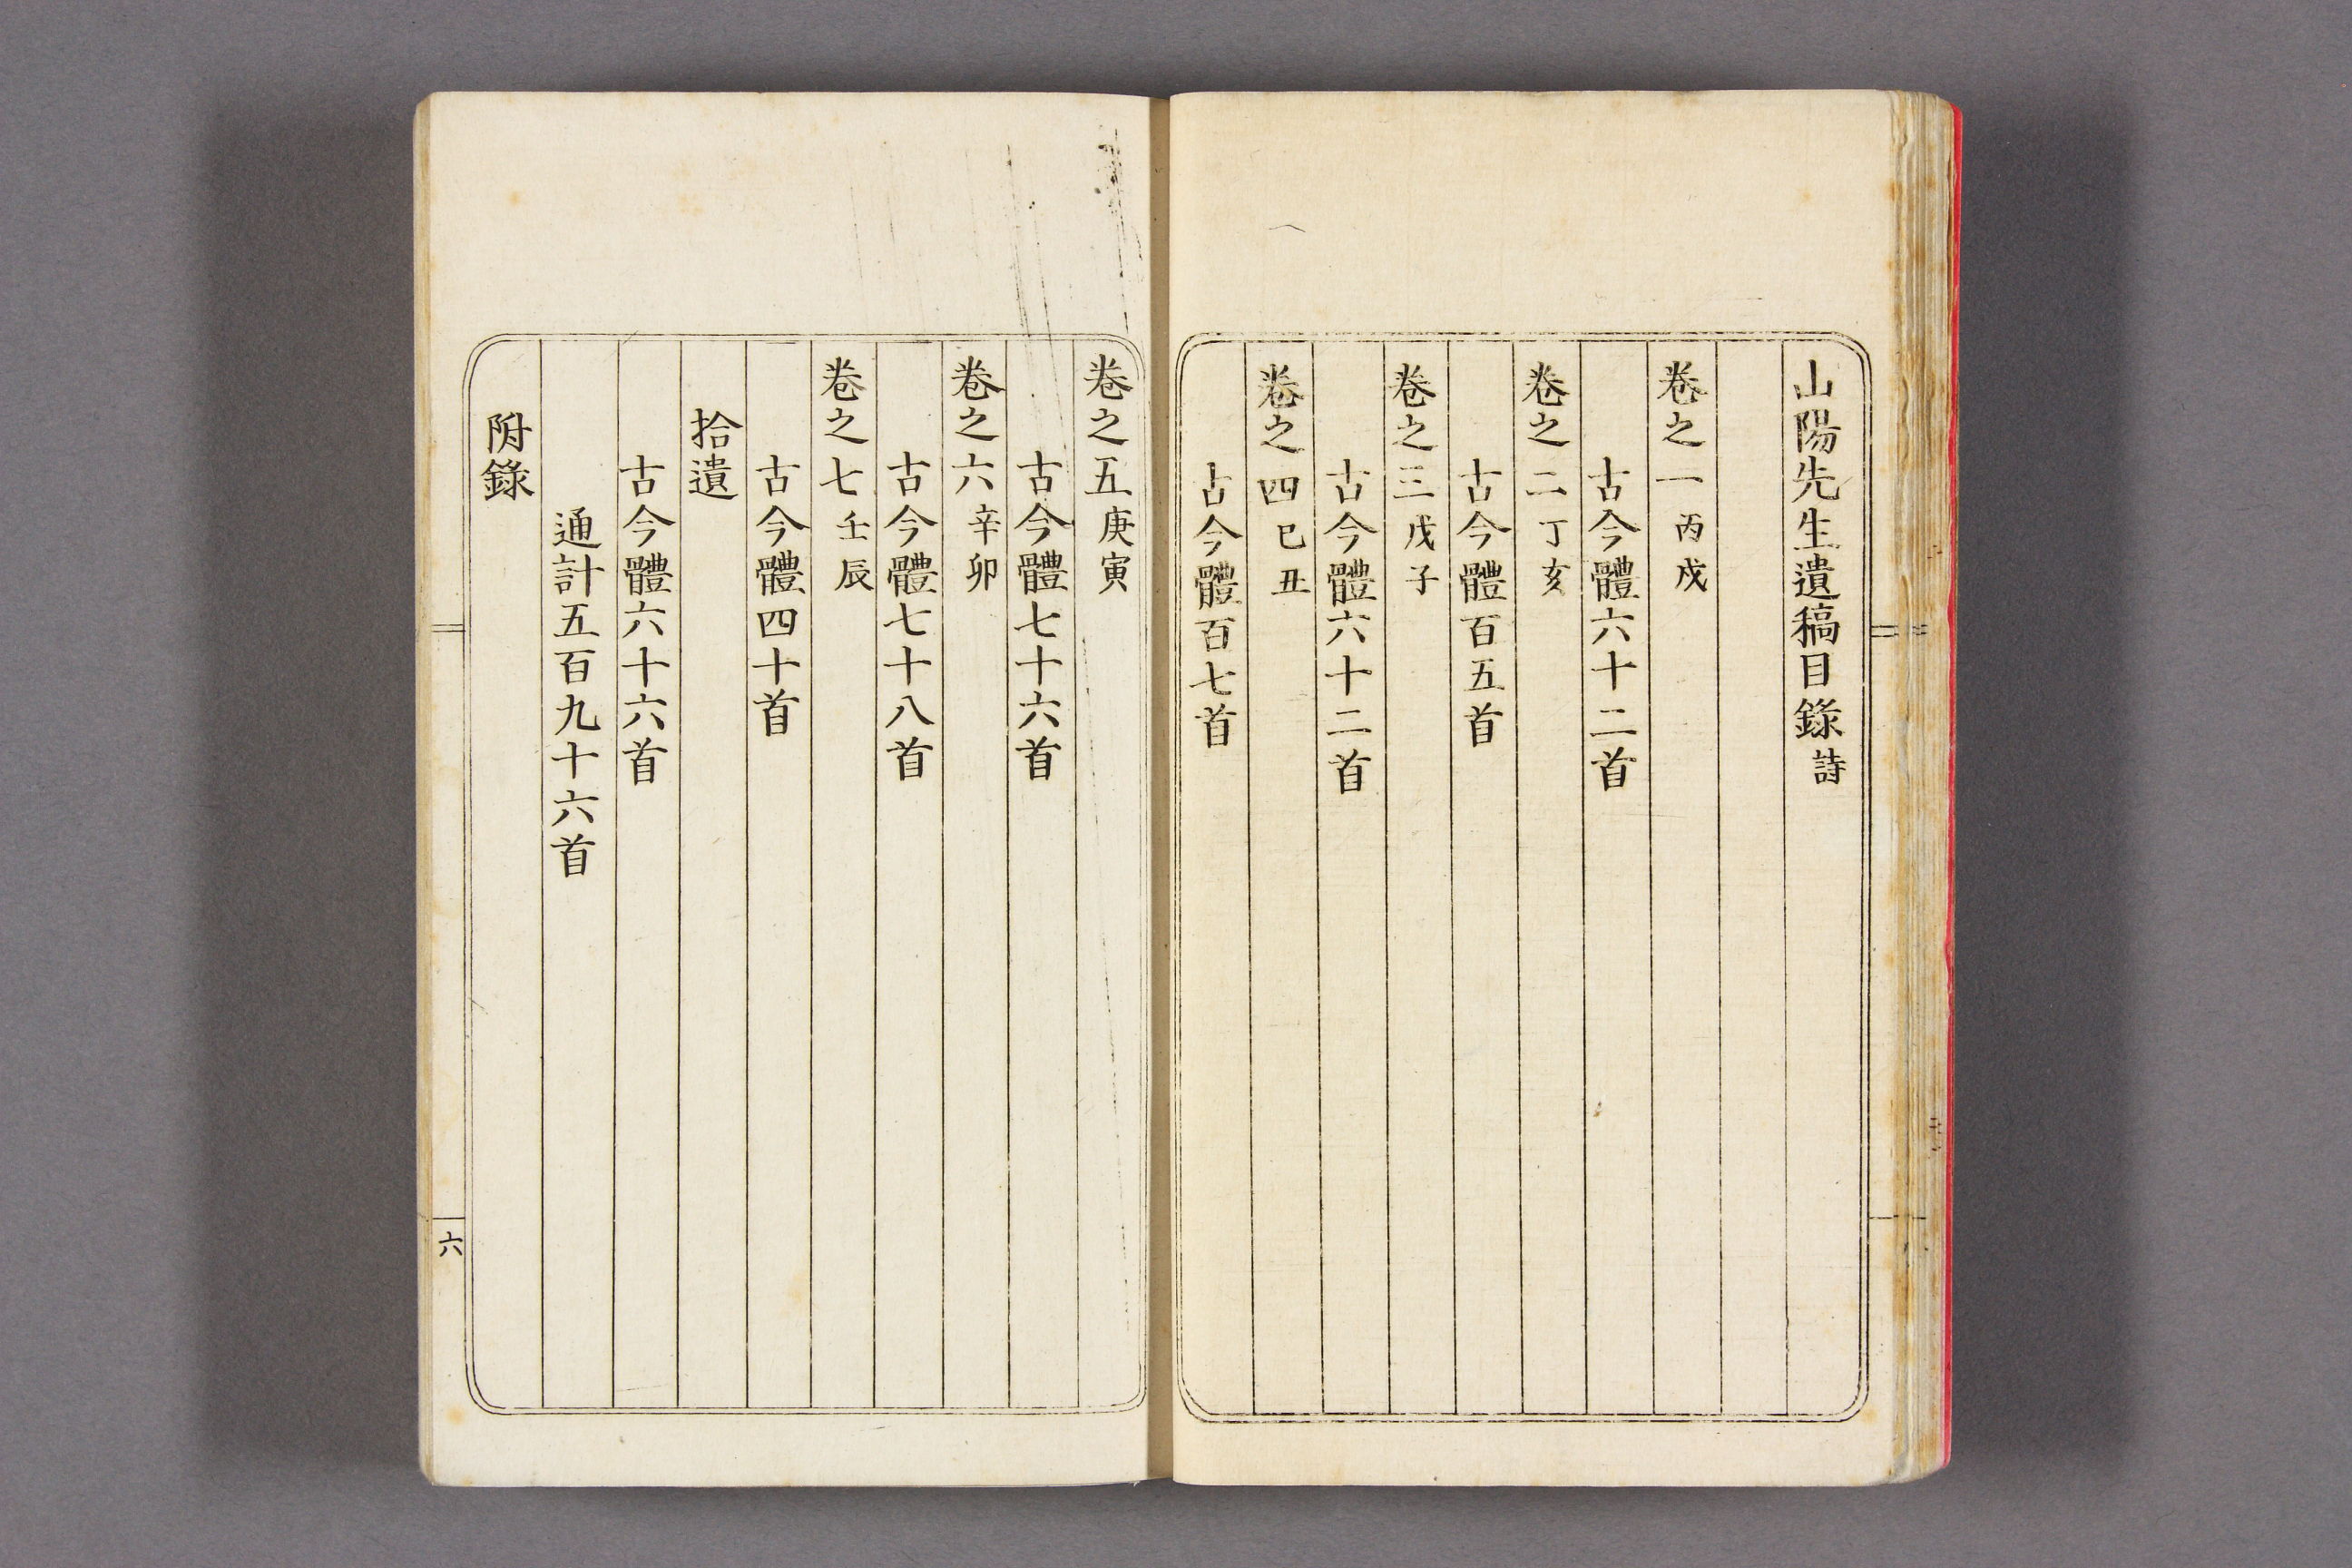 山陽先生遺稿目錄 詩
卷之一 丙戌
古今體六十二首
卷之二 丁亥
古今體百五首
卷之三 戊子
古今體六十二首
卷之四 巳丑
古今體百七首
卷之五 庚寅
古今體七十六首
卷之六 辛卯
古今體七十八首
卷之七 壬辰
古今體四十首
拾遺
古今體六十六首
通計五百九十六首
附錄
六